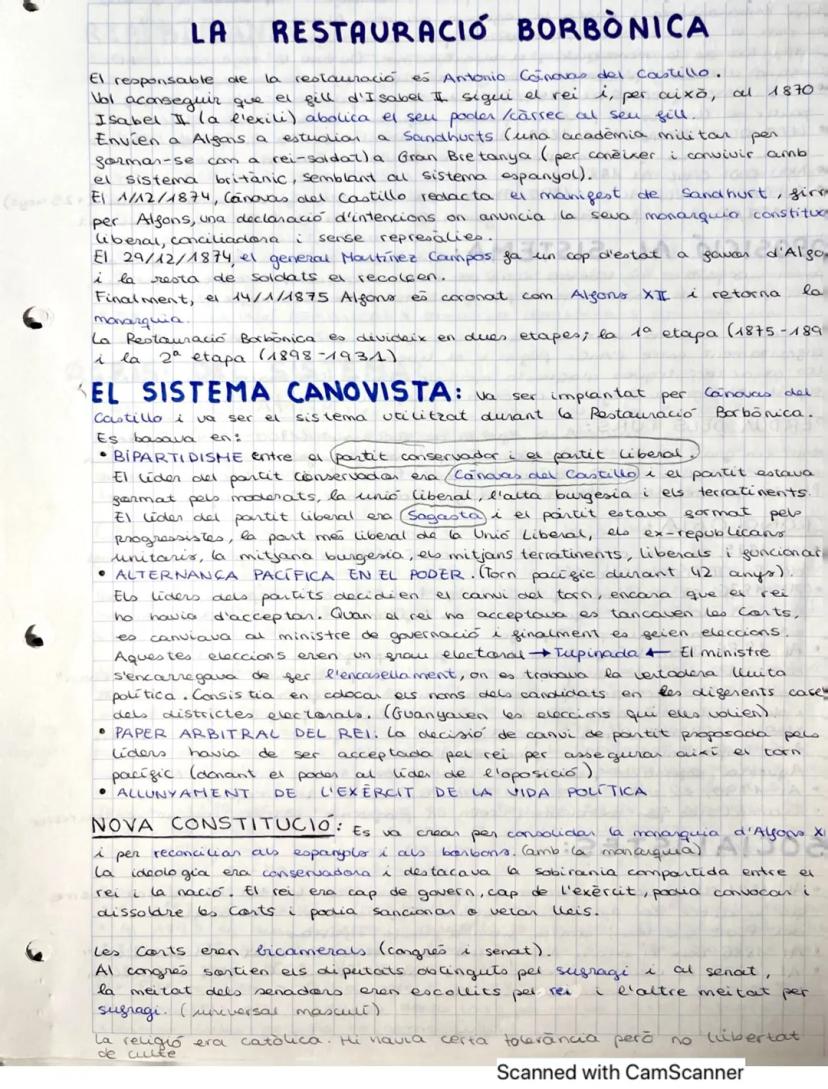 LA RESTAURACIÓ BORBÒNICA
El responsable de la restauració és Antonio Cánovas del Castillo.
Vol aconseguir que el fill d'Isabel II sigui el rei i, per això, al 1870
Isabel II (a l'exili) abolica el seu poder/càrrec al seu fill.
Envien a Alfons a estudiar a Sandhurts (una acadèmia militar per
formar-se com a rei-soldat) a Gran Bretanya (per conèixer i convivir amb
el sistema britànic, semblant al sistema espanyol).
El 1/12/1874, Cánovas del Castillo redacta el manifest de Sandhurt, firm
per Alfons, una declaració d'intencions on anuncia la seva monarquia constituc
liberal, conciliadora i sense represàlies.
El 29/12/1874, el general Martínez Campos fa un cop d'estat a favor d'Alfo
i la resta de soldats el recolcen.
Finalment, el 14/1/1875 Alfons és coronat com Alfons XII i retorna la
monarquia.
La Restauració Borbònica es divideix en dues etapes; la 1ª etapa (1875-189
i la 2ª etapa (1898-1931)
EL SISTEMA CANOVISTA: va ser implantat per Cánovas del
Castillo i va ser el sistema utilitzat durant la Restauració Borbònica.
Es basava en:
• BIPARTIDISME entre el partit conservador i el partit liberal.
El líder del partit conservador era Cánovas del Castillo i el partit estava
format pels moderats, la unió liberal, l'alta burgesia i els terratinents.
El líder del partit liberal era Sagasta i el partit estava format pels
progressistes, la part més liberal de la Unió Liberal, els ex-republicans
unitaris, la mitjana burgesia, els mitjans terratinents, liberals i funcionar
• ALTERNANÇA PACÍFICA EN EL PODER. (Torn pacífic durant 42 anys).
Els líders dels partits decidien el canvi del torn, encara que el rei
ho havia d'acceptar. Quan el rei ho acceptava es tancaven les Corts,
es canviava al ministre de governació i finalment es feien eleccions.
Aquestes eleccions eren un frau electoral → Tupinada ← El ministre
s'encarregava de fer l'encasellament, on es trobava la vertadera lluita
política. Consistia en colocar els noms dels candidats en les diferents case
dels districtes electorals. (Guanyaven les eleccions qui ells volien)
• PAPER ARBITRAL DEL REI. La decisió de canvi de partit proposada pels
líders havia de ser acceptada pel rei per assegurar així el torn
pacífic (donant el poder al líder de l'oposició)
• ALLUNYAMENT DE L'EXÈRCIT DE LA VIDA POLÍTICA
NOVA CONSTITUCIÓ: Es va crear per consolidar la monarquia d'Alfons XI
i per reconciliar als espanyols i als borbons. (amb la monarquia)
La ideologia era conservadora i destacava la sobirania compartida entre el
rei i la nació. El rei era cap de govern, cap de l'exèrcit, podia convocar i
dissoldre les Corts i podia sancionar o vetar lleis.
Les Corts eren bicamerals (congrés i senat).
Al congrés sortien els diputats obtinguts pel sufragi i al senat,
la meitat dels senadors eren escollits pel rei i l'altre meitat per
sufragi. (universal masculí)
La religió era catòlica. Hi havia certa tolerància però no llibertat
de culte
Scanned with CamScanner